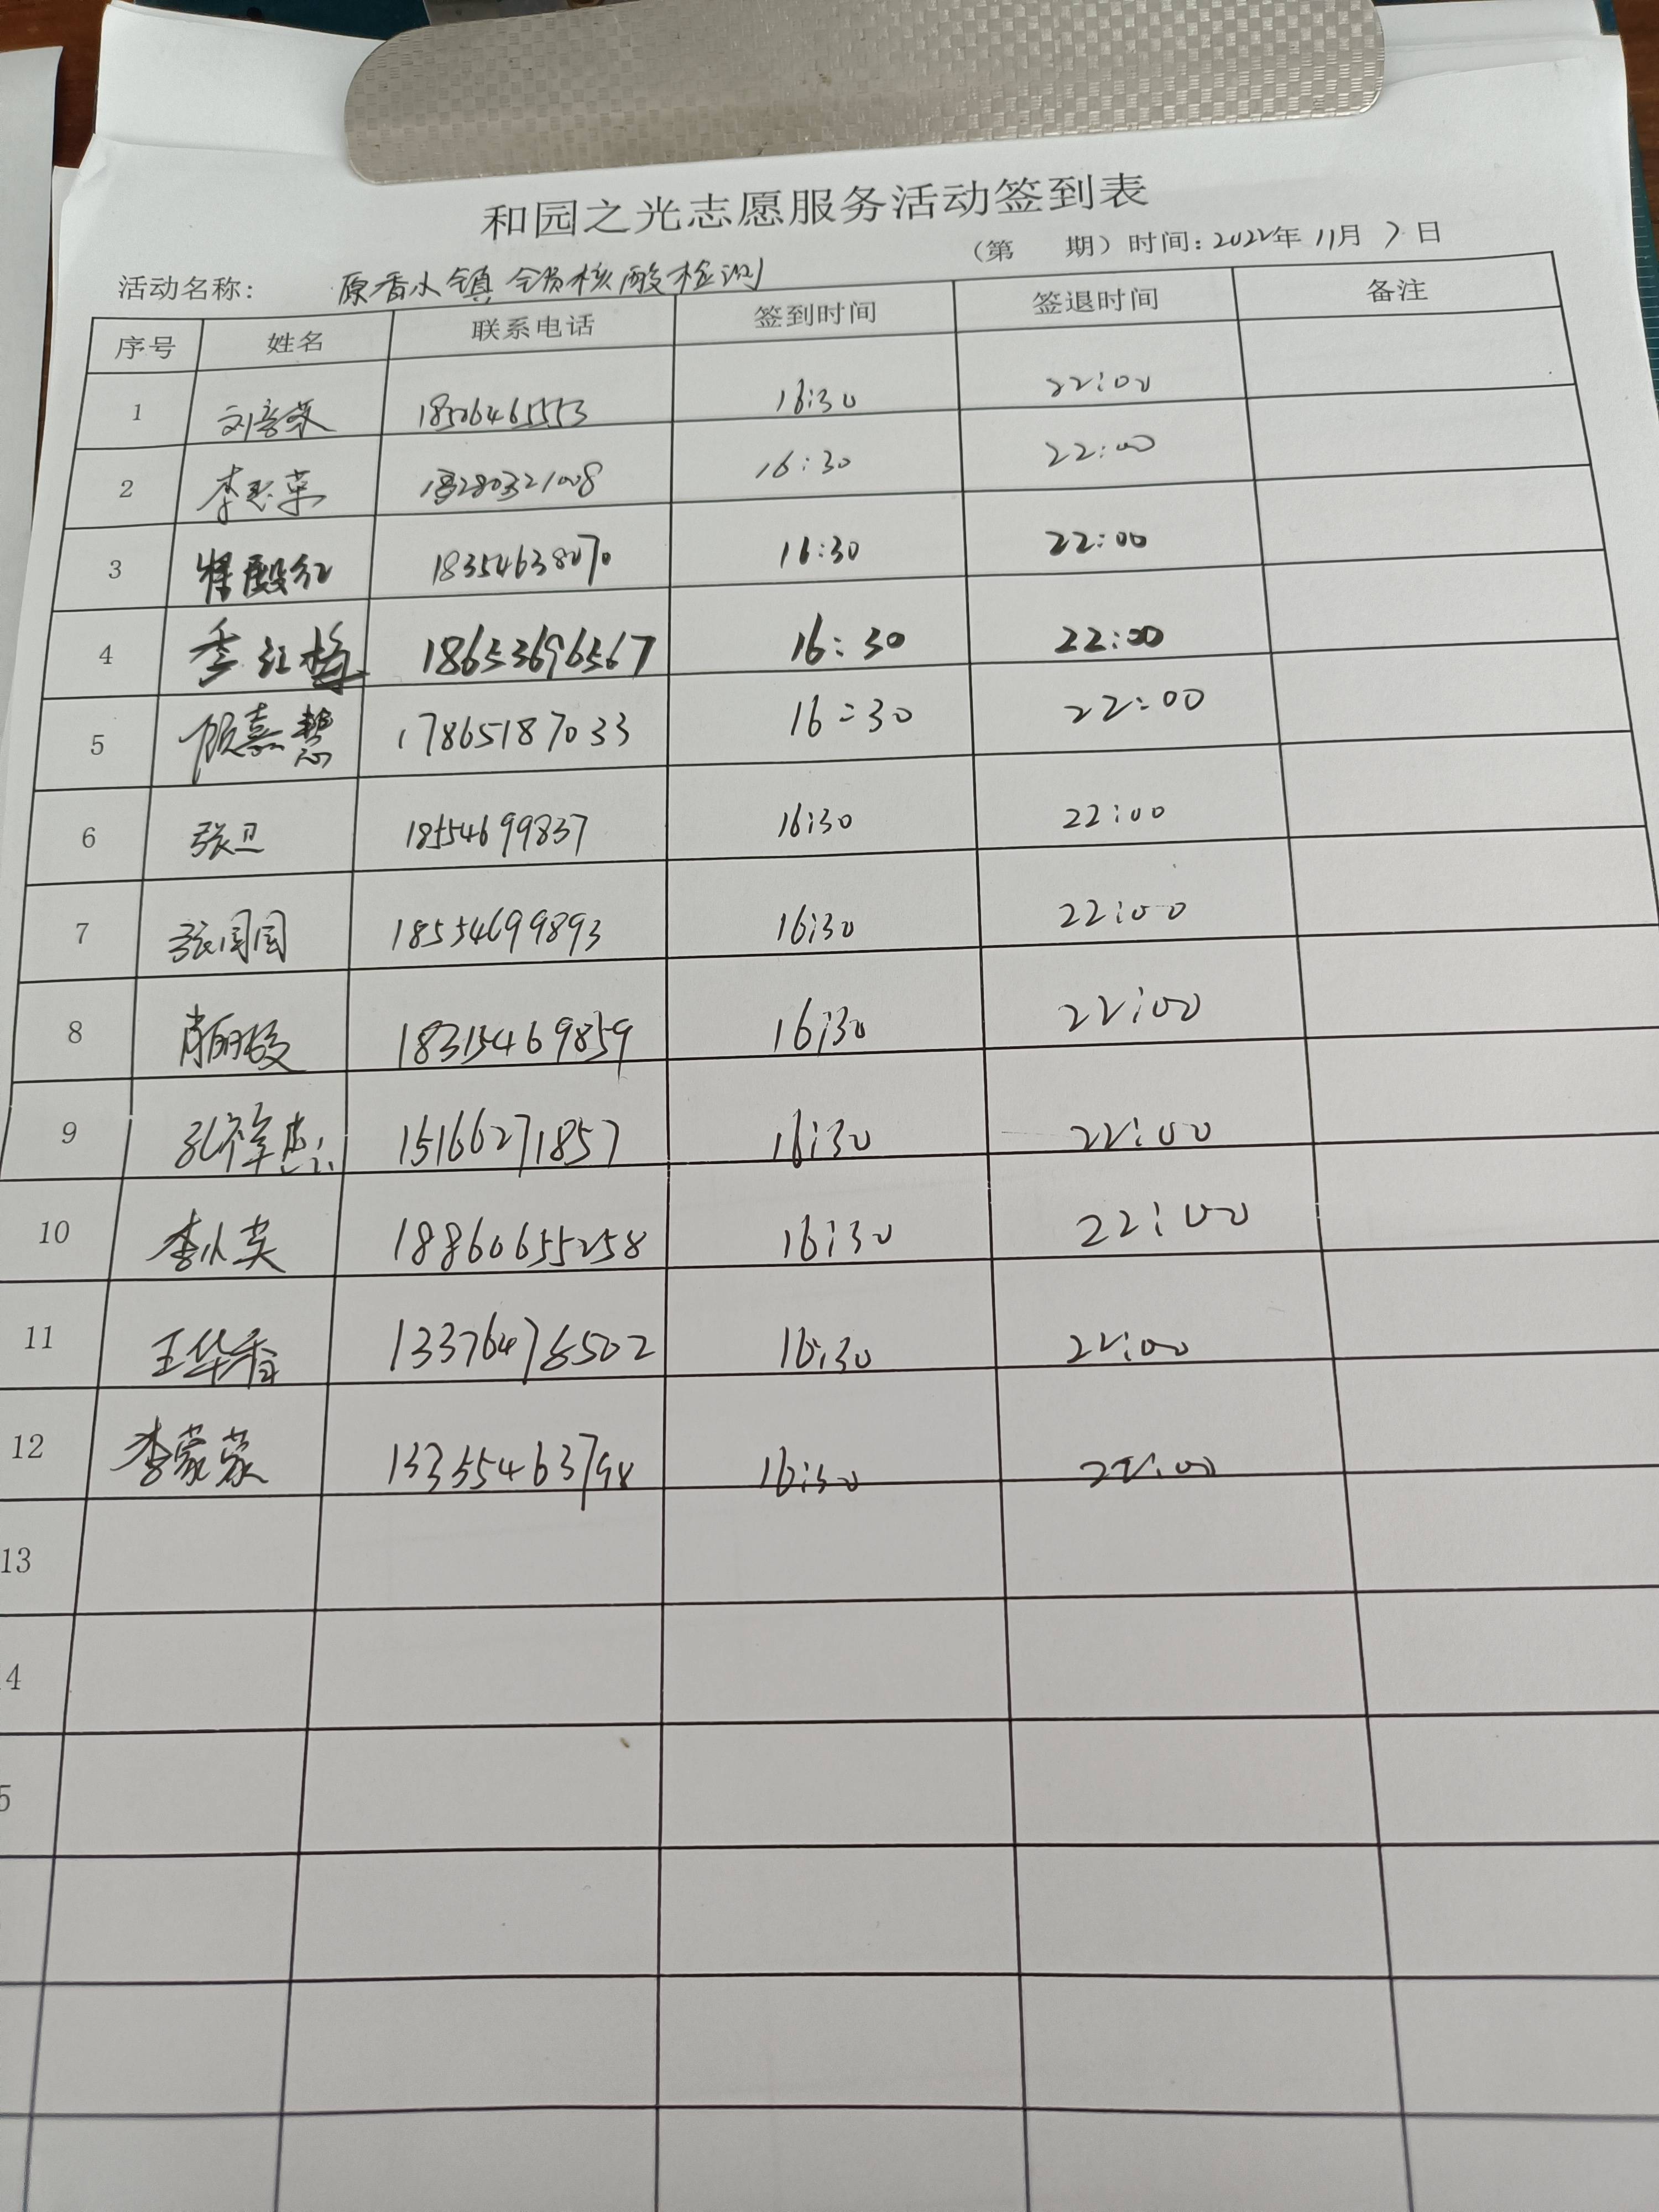 和园之光志愿服务活动签到表
（第 期）时间：2022年 11月 7日
活动名称： 原香小镇全员核酸检测
序号 姓名 联系电话 签到时间 签退时间 备注
1 18506465553 16:30 22:00
2 16:30 22:00
3 18354638070 16:30 22:00
4 季红梅 18653696567 16:30 22:00
5 顾嘉慧 17865187033 16:30 22:00
6 张卫 18554699837 16:30 22:00
7 张圆圆 18554699893 16:30 22:00
8 18315469859 16:30 22:00
9 15166271857 16:30 22:00
10 李小英 18860655258 16:30 22:00
11 王华香 13376476502 16:30 22:00
12 李蒙蒙 13355463798 16:30 22:00
13